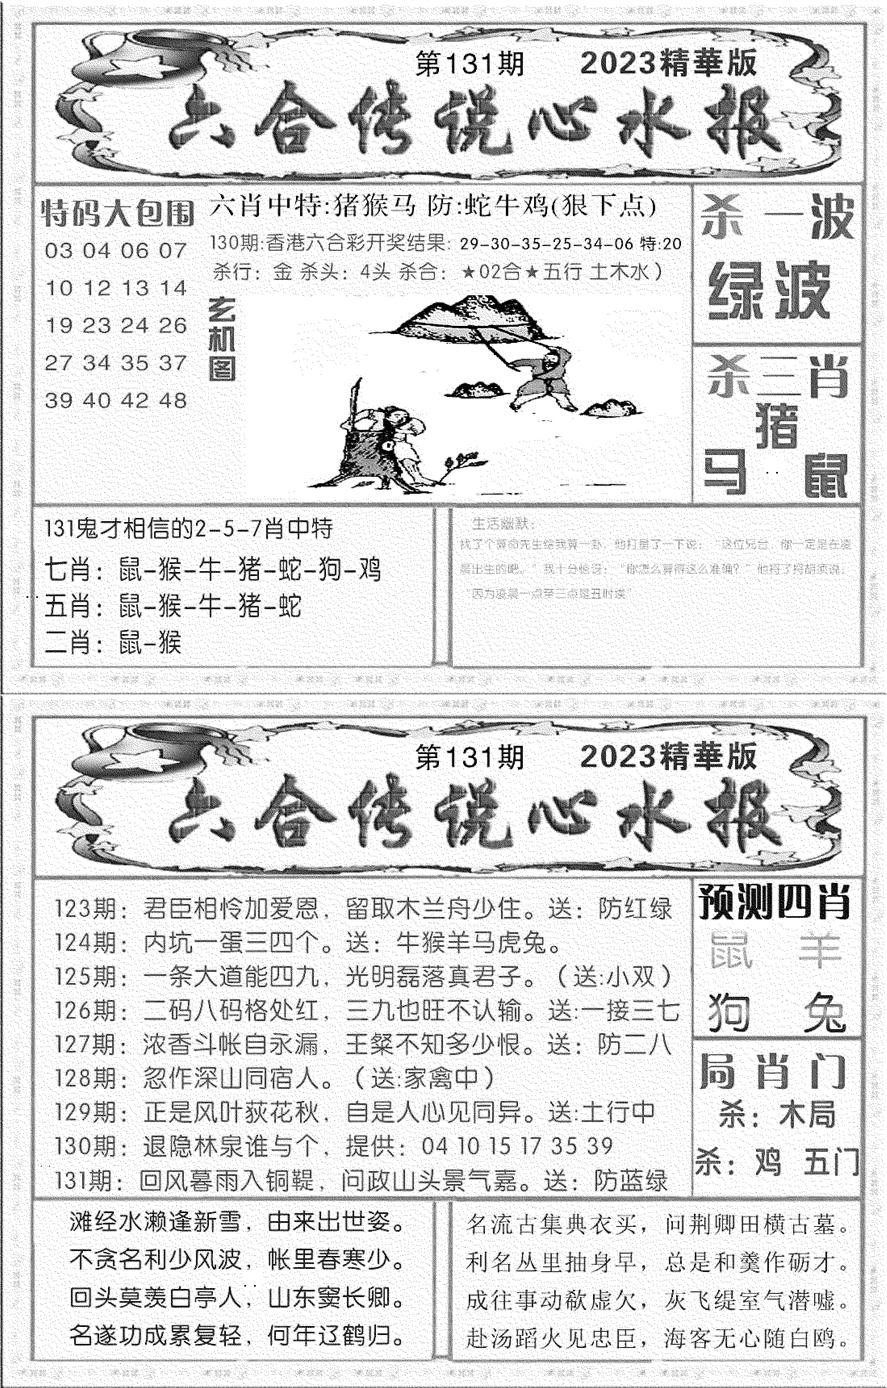 第131期 2023精華版
六合传说心水报
特码大包围
03 04 06 07
10 12 13 14
19 23 24 26
27 34 35 37
39 40 42 48
六肖中特:猪猴马 防:蛇牛鸡(狠下点)
130期:香港六合彩开奖结果: 29-30-35-25-34-06 特:20
杀行: 金 杀头: 4头 杀合: ★02合★五行 土木水）
玄机图
杀一波
绿波
杀三肖
猪
马 鼠
131鬼才相信的2-5-7肖中特
七肖: 鼠-猴-牛-猪-蛇-狗-鸡
五肖: 鼠-猴-牛-猪-蛇
二肖: 鼠-猴
生活幽默:
找了个算命先生给我算一卦，他打量了一下说：“这位兄台，你一定是在凌
晨出生的吧。”我十分恼讶：“你怎么算得这么准确？”他捋了捋胡须说：
“因为凌晨一点至三点是丑时埃”
第131期 2023精華版
六合传说心水报
123期：君臣相怜加爱恩，留取木兰舟少住。送：防红绿
124期：内坑一蛋三四个。送：牛猴羊马虎兔。
125期：一条大道能四九，光明磊落真君子。（送:小双）
126期：二码八码格处红，三九也旺不认输。送:一接三七
127期：浓香斗帐自永漏，王粲不知多少恨。送：防二八
128期：忽作深山同宿人。（送:家禽中）
129期：正是风叶荻花秋，自是人心见同异。送:土行中
130期：退隐林泉谁与个，提供：04 10 15 17 35 39
131期：回风暮雨入铜鞮，问政山头景气嘉。送：防蓝绿
预测四肖
鼠 羊
狗 兔
局肖门
杀：木局
杀：鸡 五门
滩经水濑逢新雪，由来出世姿。
不贪名利少风波，帐里春寒少。
回头莫羡白亭人，山东窦长卿。
名遂功成累复轻，何年辽鹤归。
名流古集典衣买，问荆卿田横古墓。
利名丛里抽身早，总是和羹作砺才。
成往事动欷虚欠，灰飞缇室气潜嘘。
赴汤蹈火见忠臣，海客无心随白鸥。